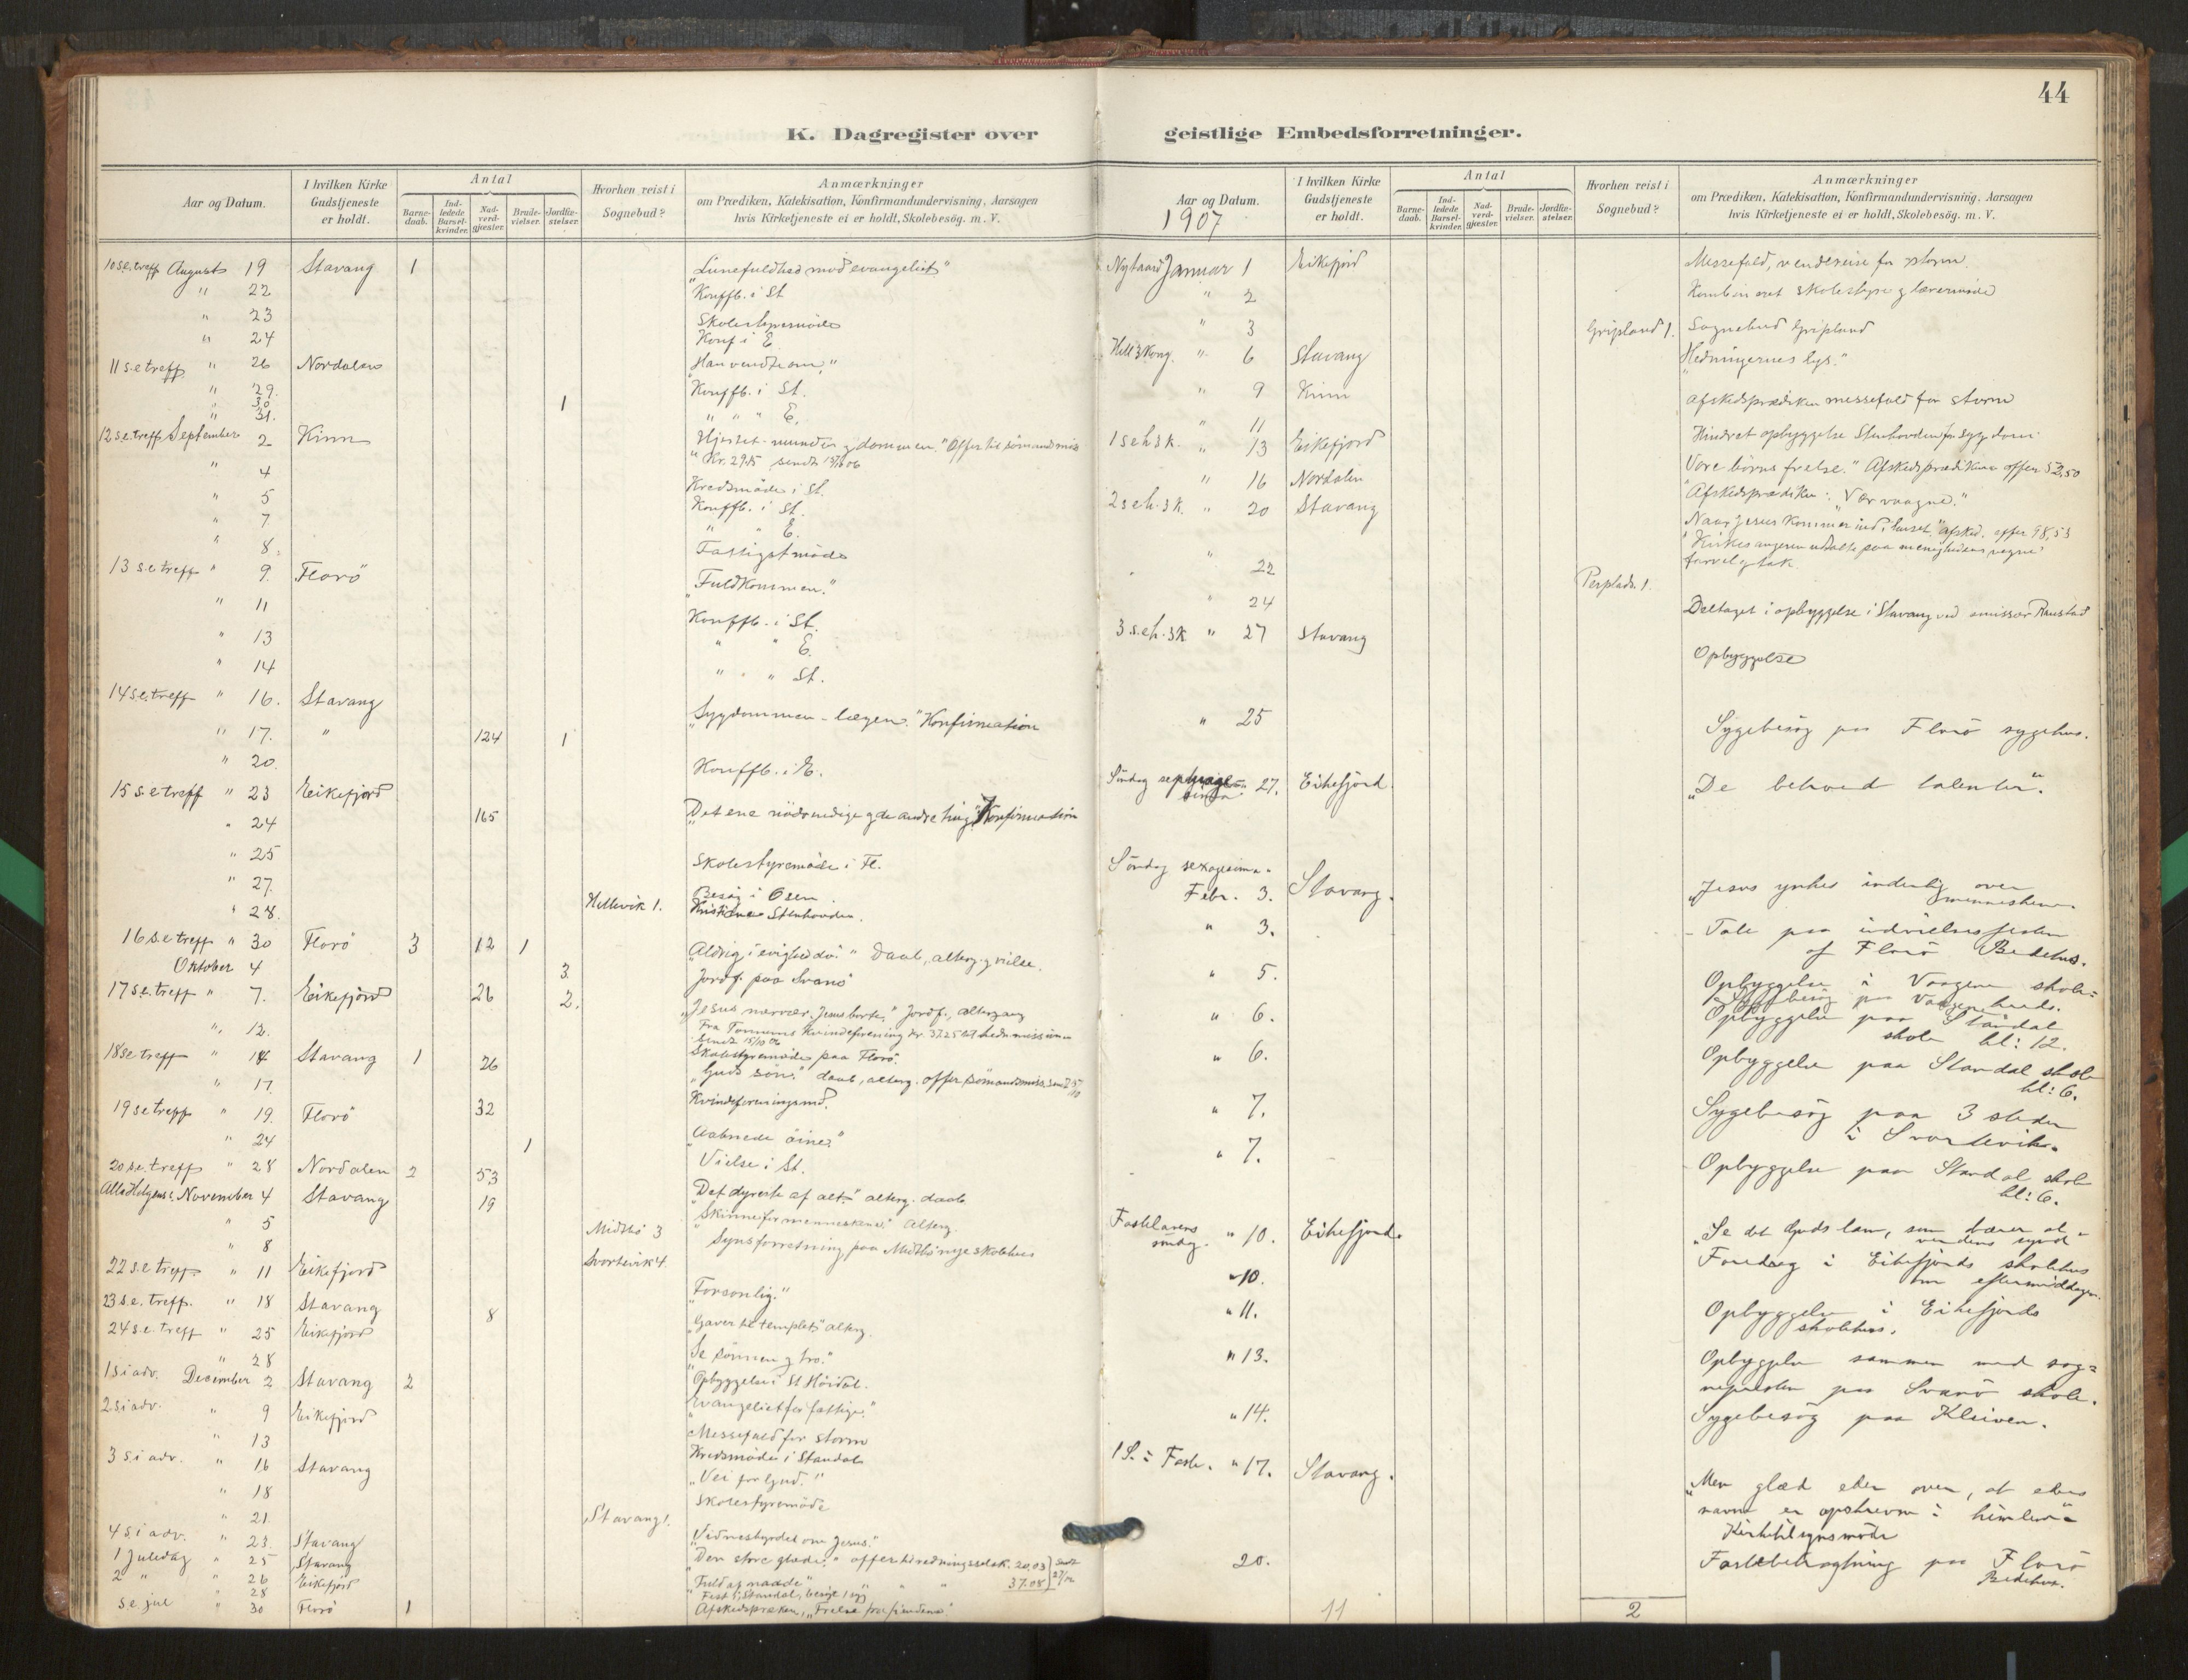 44
K. Dagregister over
Aar og Datum.
I hvilken Kirke Gudstjeneste er holdt.
Antal
Barne-daab.
Ind-ledede Barsel-kvinder.
Nad-verd-gjæster.
Brude-vielser.
Jordfæ-stelser.
Hvorhen reist i Sognebud?
Anmærkninger
om Prædiken, Katekisation, Konfirmandundervisning, Aarsagen
hvis Kirketjeneste ei er holdt, Skolebesøg. m. V.
10 s.e. treff Augusts 19 Stavang 1 "Lunefuldhed mod evangeliet"
" 22 Konffb. i St
" 23 Skolestyremöde
" 24 Konf i E
11 s.e treff. " 26 Nordalen "Han vendte om."
" 29. Konffb. i St.
" 30 1
" 31. " " " E.
12 s.e treff. September 2 Kinn "Hjertet - munden og dommen." Offer til sömandsmis
Kr. 29.15 sendt
" 4 Kredsmöde i St.
" 5 Konffb. i St.
" 7 " " E.
" 8. Fattigstmöde
13 s.e treff " 9. Florö "Fuldkommen."
" 11 Konffb. i St.
" 13 " " E.
" 14 " " " St.
14 s.e. treff " 16. Stavang "Sygdommen - lægen." Konfirmation
" 17. " 124 1
" 20. Konffb. i E.
15 s.e treff " 23 Eikefjord "Det ene nödvendige og de andre ting" Konfirmation
" 24 165
" 25 Skolestyremöde i Fl.
" 27. Besög i Osen.
" 28. Hellevik 1. Stenhovden.
16 s.e treff " 30 Florö 3 12 1 "Aldrig i evighed dö." Daab, alterg. og vielse.
Oktober 4 3 Jordf. paa Svanö
17 s.e. treff " 7. Eikefjord 26 2. "Jesus nærvær. Jesus borte." Jordf., altergang
Fra Kvindeforening kr. 37.25 til hedn.missionen
sendt 15/10 06
" 12. Skolestyremöde paa Florö
18 s.e treff " 14 Stavang 1 26 "Guds sön." daab, alterg. offer sömandsmiss.
" 17. Kvindeforeningsmd.
19 s.e treff " 19. Florö 32 "Aabnede öine."
" 24 1 Vielse i St.
20 s.e. treff " 28 Nordalen 2 53 "Det dyreste af alt." alterg. daab
Alle Helgens s. November 4 Stavang 19 "Skinne for menneskene" Alterg.
" 5 Midtbö 3 Synsforretning paa Midtbö nye skolehus
" 8 Svortevik 4.
22 s.e treff. " 11 Eikefjord "Forsonlig."
23 s.e. treff. " 18 Stavang 8 "Gaver til templet" alterg.
24 s.e. treff " 25 Eikefjord "Se sönnen og tro."
" 28 Opbyggelse i St Höidal.
1 s i adv. December 2 Stavang 2 "Evangeliet for fattige."
2 s i adv. " 9 Eikefjord Messefald for storm
" 13 Kredsmöde i Standal
3 s i adv. " 16 Stavang "Vei for Gud."
" 18 Skolestyremöde
" 21. Stavang 1.
4 s. i adv. " 23. Stavang "Vidnesbyrdet om Jesus."
1 Juledag " 25 Stavang "Den store glæde." offer til redningsselsk. 20.03
2 " " 26 Eikefjord "Fuld af naade" " " 37.08
" 28 Fest i Standal, besöge 1 syg
s e jul " 30 Florö 1 Afskedspræken, "Frelse fra synderne"
geistlige Embedsforretninger.
Aar og Datum.
1907
I hvilken Kirke Gudstjeneste er holdt.
Antal
Barne-daab.
Ind-ledede Barsel-kvinder.
Nad-verd-gjæster.
Brude-vielser.
Jordfæ-stelser.
Hvorhen reist i Sognebud?
Anmærkninger
om Prædiken, Katekisation, Konfirmandundervisning, Aarsagen
hvis Kirketjeneste ei er holdt, Skolebesøg. m. V.
Nytaarsd Januar 1 Eikefjord Messefald, vendereise for storm.
" 2 Kombineret skolestyre og lærermöde
" 3 Gripland 1. Sognebud Gripland
Hell 3 Kong. " 6 Stavang "Hedningernes lys."
" 9 Kinn Afskedsprædiken messefald for storm
" 11 Hindret opbyggelse Stenhovden for sygdom
1 s e h 3 k. " 13 Eikefjord Vore börns frelse." Afskedsprædiken offer 52,50
" 16 Nordalen "Afskedsprædiken: "Vær vaagne."
2 s e h. 3 k. " 20 Stavang "Naar Jesus kommer ind i huset." afsked. offer 98,53
Kirkesangeren udtalte paa menighedens vegne
farvel og tak.
" 22 Perplads. 1.
" 24 Deltaget i opbyggelse i Stavang ved emissær Ramstad
3 s.e.h. 3 k " 27 Stavang Opbyggelse
" 25 Sygebesög paa Florö sygehus.
Söndag septuage-sima 27. Eikefjord. "De betroed talenter".
Söndag sexagesima.
Febr. 3. Stavang. "Jesus ynkes inderlig over menneskene.
" 3. Tale paa indvielsesfesten
af Florö Bedehus.
" 5. Opbyggelse i Vaagene skole
og Sygebesög paa Vaagene kreds.
" 6. Opbyggelse paa Standal
skole kl: 12.
" 6. Opbyggelse paa Standal skole
kl: 6.
" 7. Sygebesög paa 3 steder
i Svortevik.
" 7. Opbyggelse paa Standal skole
kl: 6.
Fastelavens söndag. " 10. Eikefjord. "Se det Guds lam, som bærer al
verdens synd"
" 10. Foredrag i Eikefjords skolehus
om eftermiddagen.
" 11. Opbyggelse i Eikefjords
skolehus.
" 13. Opbyggelse sammen med sog=
nepresten paa Svanö skole.
" 14. Sygebesög paa Kleiven.
1 S. i Faste. " 17. Stavang. "Men glæd eder over, at eders
navne er opskrevne i himlene"
Kirketilsynsmöde
20. Fastebetragtning paa Florö
Bedehus.
11 2